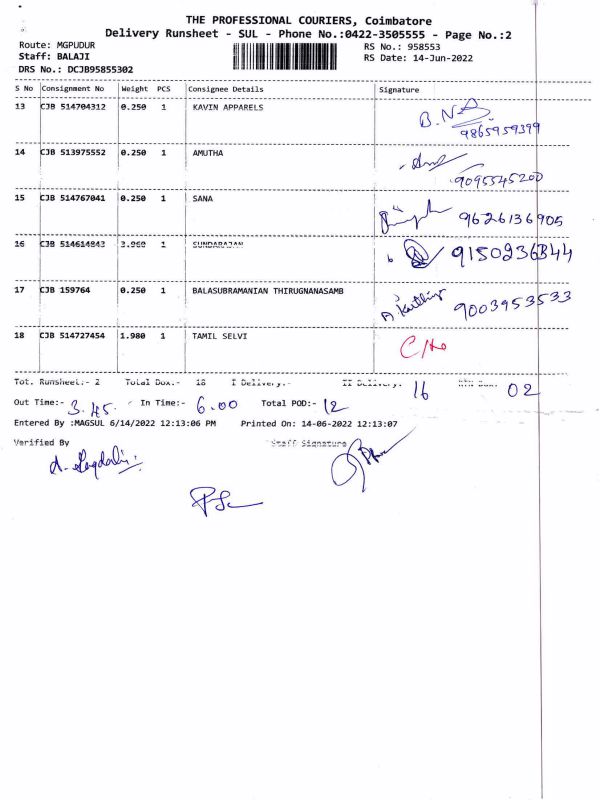 THE PROFESSIONAL COURIERS, Coimbatore
Delivery Runsheet - SUL - Phone No.:0422-3505555 - Page No.:2
Route: MGPUDUR RS No.: 958553
Staff: BALAJI RS Date: 14-Jun-2022
DRS No.: DCJB95855302
S No Consignment No Weight PCS Consignee Details Signature
13 CJB 514704312 0.250 1 KAVIN APPARELS
9865959399
14 CJB 513975552 0.250 1 AMUTHA
9095545200
15 CJB 514767041 0.250 1 SANA 9626136905
16 CJB 514614843 3.960 1 SUNDARAJAN 9150236344
17 CJB 159764 0.250 1 BALASUBRAMANIAN THIRUGNANASAMB 9003953533
18 CJB 514727454 1.980 1 TAMIL SELVI
Tot. Runsheet:- 2 Total Dox:- 18 I Delivery:- II Delivery: 16 02
Out Time:- 3.45. In Time:- 6.00 Total POD:- 12
Entered By :MAGSUL 6/14/2022 12:13:06 PM Printed On: 14-06-2022 12:13:07
Verified By Staff Signature